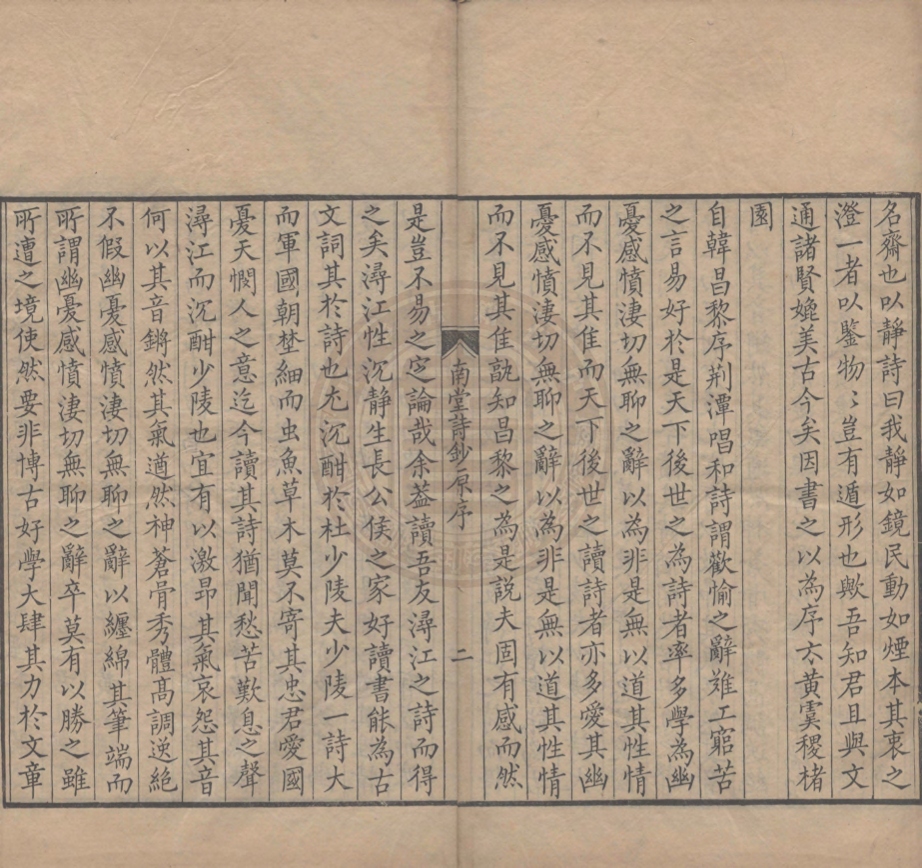 名齋也以靜詩曰我靜如鏡民動如煙本其衷之
澄一者以鑒物〻豈有遁形也歟吾知君且與文
通諸賢媲美古今矣因書之以為序太黃虞稷楮
園
自韓昌黎序荆潭唱和詩謂歡愉之辭難工窮苦
之言易好於是天下後世之為詩者率多學為幽
憂感憤淒切無聊之辭以為非是無以道其性情
而不見其隹而天下後世之讀詩者亦多愛其幽
憂感憤淒切無聊之辭以為非是無以道其性情
而不見其隹孰知昌黎之為是説夫固有感而然
南堂詩鈔原序 二
是豈不易之定論哉余葢讀吾友潯江之詩而得
之矣潯江性沉靜生長公侯之家好讀書能為古
文詞其於詩也尤沉酣於杜少陵夫少陵一詩大
而軍國朝埜細而虫魚草木莫不寄其忠君愛國
憂天憫人之意迄今讀其詩猶聞愁苦歎息之聲
潯江而沉酣少陵也宜有以激昂其氣哀怨其音
何以其音鏘然其氣遒然神蒼骨秀體髙調逸絕
不假幽憂感憤淒切無聊之辭以纏綿其筆端而
所謂幽憂感憤淒切無聊之辭卒莫有以勝之雖
所遭之境使然要非博古好學大肆其力於文章